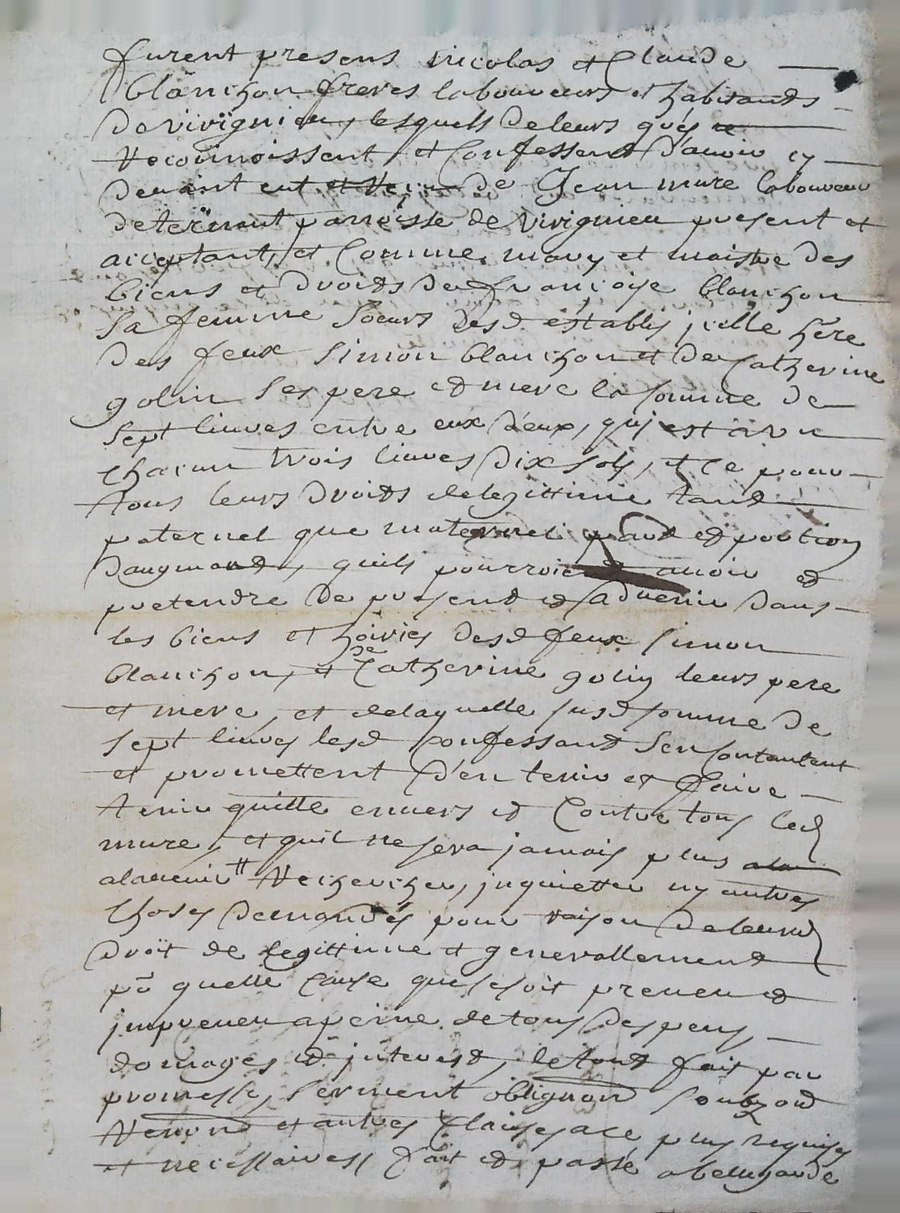 furent presens nicolas et Claude
blanchon freres laboureurs et habitands
de virignieu, lesquels de leurs grés
recounoissent et Confessent d'avoir cy
devant eut et receu de Jean mure laboureur
de parroisse de virignieu present et
acceptant, et Comme mary et maistre des
biens et droits de françoise blanchon
sa femme soeurs desd establis jcelle here
des feux simon blanchon et de Catherine
golin ses pere et mere la somme de
sept liuves entre eux deux, quj est a un
chacun trois liuves dix sols, et ce pour
tous leurs droits de legittime tand
paternel que maternel part et portion
daugmand, quils pourroient avoir et
pretendre de present et a advenir dans
les biens et hoiries desd feux simon
blanchon, et de Catherine golin leurs pere
et mere, et de laquelle susd somme de
sept liuves lesd Confessant sen contantent
et promettent d'en tenir et faire
tenir quitte envers et Contre tous led
mure, et quil ne sera jamais plus
aladvenir rechercher, jnquietter ny autres
choses demandés pour raison de leurd
droit de legittime et generallement
pr quelle cause que se soit preveu et
jmpreveu a peine de tous despens,
domages et jnterest, le tout fait par
promesse, serment obligaon soubz
renon et autres Clauses a ce plus requises
et necessaires fait et passé a bellegarde